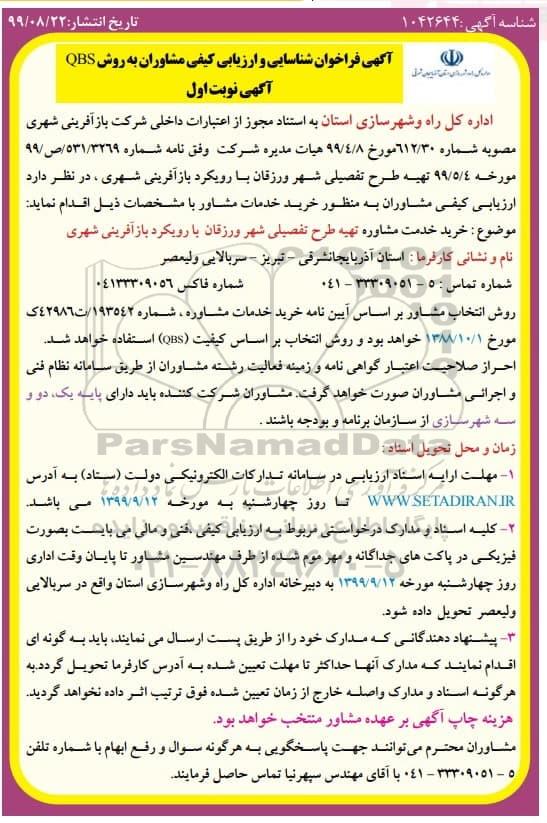 شناسه آگهی: ۱۰۴۲۶۴۴
تاریخ انتشار: ۹۹/۰۸/۲۲
آگهی فراخوان شناسایی و ارزیابی کیفی مشاوران به روش QBS
آگهی نوبت اول
اداره کل راه وشهرسازی استان به استناد مجوز از اعتبارات داخلی شرکت بازآفرینی شهری
مصوبه شماره ۶۱۲/۳۰مورخ ۹۹/۴/۸ هیات مدیره شرکت وفق نامه شماره ۵۳۱/۳۲۶۹/ص/۹۹
مورخه ۹۹/۵/۴ تهیه طرح تفصیلی شهر ورزقان با رویکرد بازآفرینی شهری ، در نظر دارد
ارزیابی کیفی مشاوران به منظور خرید خدمات مشاور با مشخصات ذیل اقدام نماید:
موضوع : خرید خدمت مشاوره تهیه طرح تفصیلی شهر ورزقان با رویکرد بازآفرینی شهری
نام و نشانی کارفرما : استان آذربایجانشرقی - تبریز - سربالایی ولیعصر
شماره تماس : ۵ - ۳۳۳۰۹۰۵۱ - ۰۴۱ شماره فاکس ۰۴۱۳۳۳۰۹۰۵۶
روش انتخاب مشاور بر اساس آیین نامه خرید خدمات مشاوره ، شماره ۱۹۳۵۴۲/ت۴۲۹۸۶ک
مورخ ۱۳۸۸/۱۰/۱ خواهد بود و روش انتخاب بر اساس کیفیت (QBS) استفاده خواهد شد.
احراز صلاحیت اعتبار گواهی نامه و زمینه فعالیت رشته مشاوران از طریق سامانه نظام فنی
و اجرائی مشاوران صورت خواهد گرفت. مشاوران شرکت کننده باید دارای پایه یک، دو و
سه شهرسازی از سازمان برنامه و بودجه باشند .
ParsNamadData
زمان و محل تحویل اسناد :
۱- مهلت ارایه اسناد ارزیابی در سامانه تدارکات الکترونیکی دولت (ستاد) به آدرس
WWW.SETADIRAN.IR تا روز چهارشنبه به مورخه ۱۳۹۹/۹/۱۲ می باشد.
۲- کلیه اسناد و مدارک درخواستی مربوط به ارزیابی کیفی فنی و مالی می بایست بصورت
فیزیکی در پاکت های جداگانه و مهر موم شده از طرف مهندسین مشاور تا پایان وقت اداری
روز چهارشنبه مورخه ۱۳۹۹/۹/۱۲ به دبیرخانه اداره کل راه وشهرسازی استان واقع در سربالایی
ولیعصر تحویل داده شود.
۳- پیشنهاد دهندگانی که مدارک خود را از طریق پست ارسال می نمایند، باید به گونه ای
اقدام نمایند که مدارک آنها حداکثر تا مهلت تعیین شده به آدرس کارفرما تحویل گردد.به
هرگونه اسناد و مدارک واصله خارج از زمان تعیین شده فوق ترتیب اثر داده نخواهد گردید.
هزینه چاپ آگهی بر عهده مشاور منتخب خواهد بود.
مشاوران محترم می‌توانند جهت پاسخگویی به هرگونه سوال و رفع ابهام با شماره تلفن
۵ - ۳۳۳۰۹۰۵۱ - ۰۴۱ با آقای مهندس سپهرنیا تماس حاصل فرمایند.